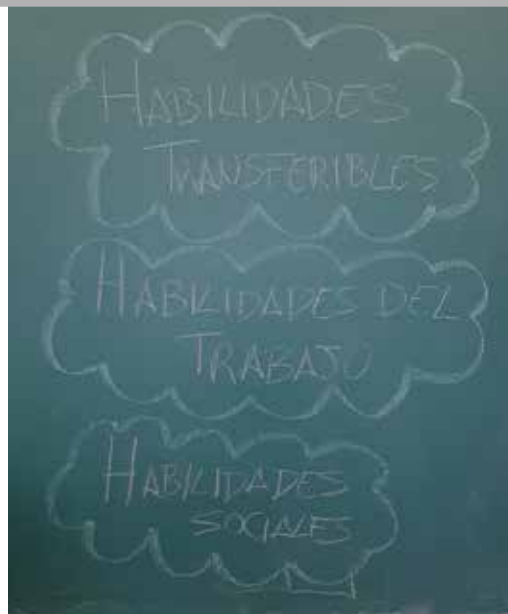 HABILIDADES
TRANSFERIBLES
HABILIDADES DEL
TRABAJO
HABILIDADES
SOCIALES